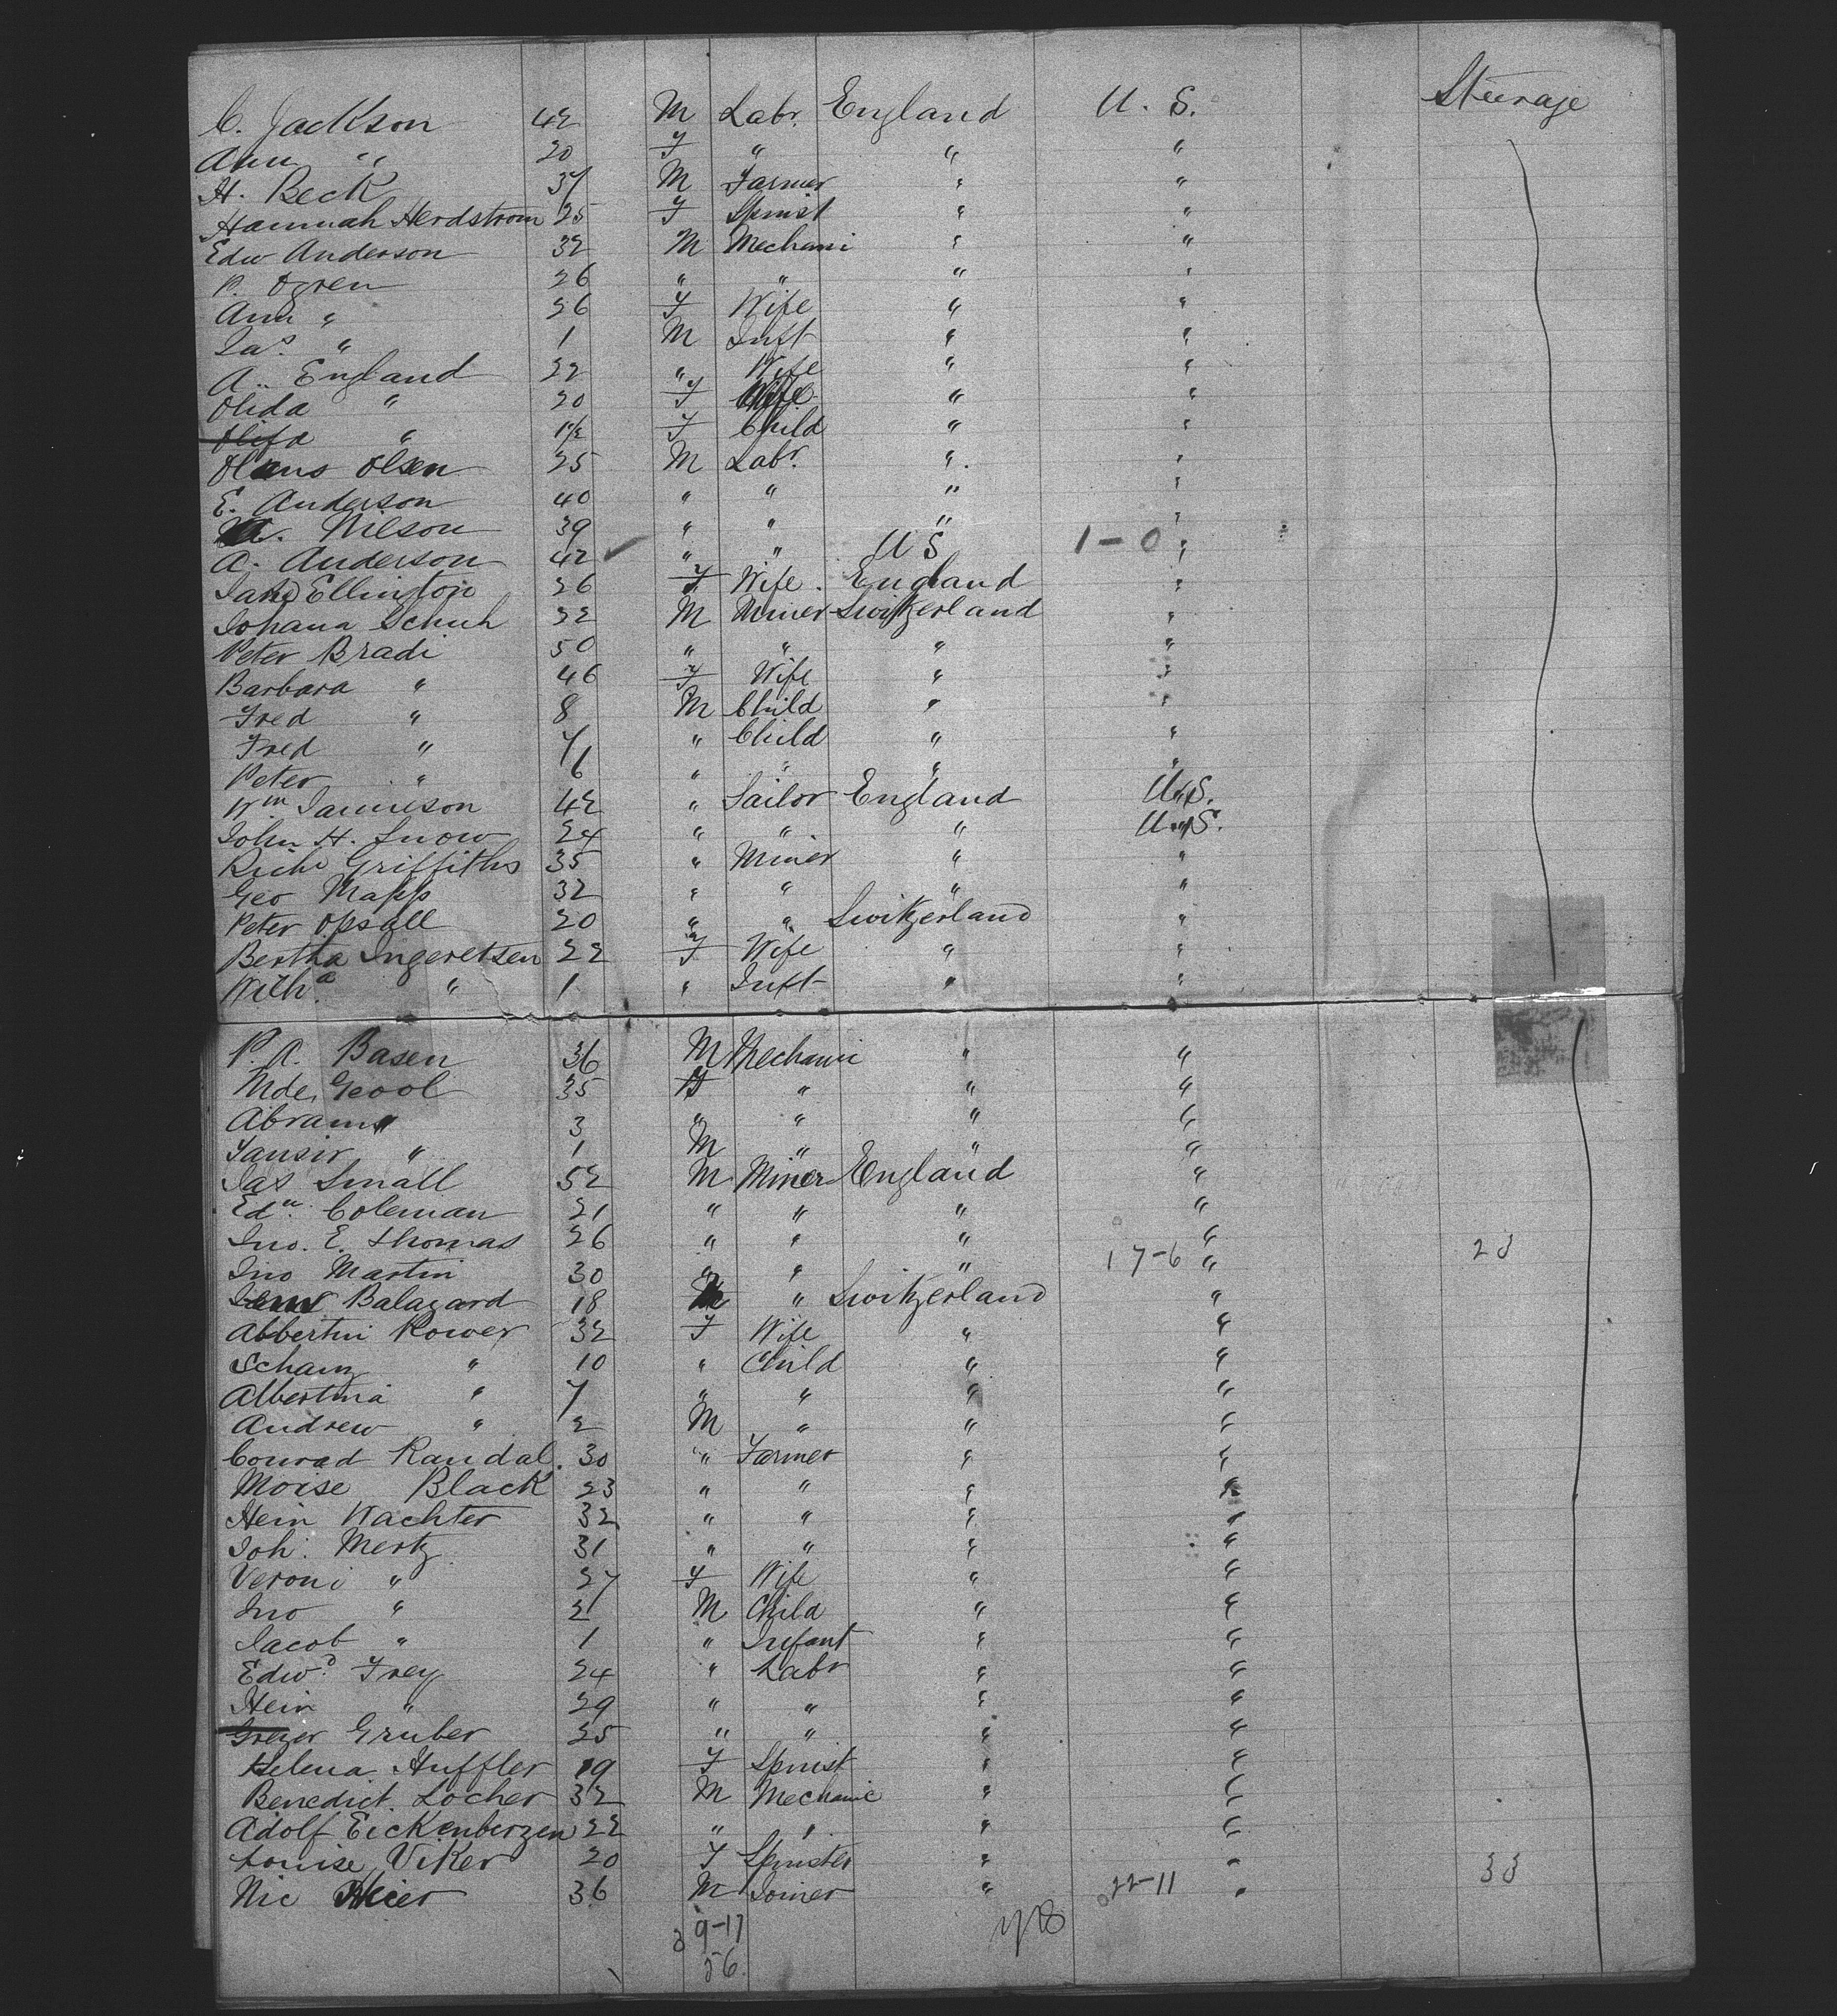 C. Jackson 42 M Labr. England U. S. Steerage
Ann " 20 F " " "
H. Beck 37 M Farmer " "
Hannah Herdstrom 25 F Spinst " "
Edw Anderson 32 M Mechani " "
P. Ogren 26 " " " "
Ann " 26 F Wife " "
Jas. " 1 M Inft " "
A. England 22 " Wife " "
Olida " 20 F Wife " "
Olifa " 1 1/2 F Child " "
Olaus Olsen 25 M Labr. " "
E. Anderson 40 " " " "
A. Nilson 39 " " " "
A. Anderson 42 " " U S 1-0 "
Jane Ellington 26 F Wife. England "
Johana Schuh 32 M Miner Switzerland "
Peter Bradi 50 " " " "
Barbara " 46 F Wife " "
Fred " 8 M Child " "
Fred " 7 " Child " "
Peter " 6 " " " "
Wm Jamieson 42 " Sailor England U.S.
John H. Snow 24 " " " U.S.
Richd Griffiths 35 " Miner " "
Geo Mapp 32 " " " "
Peter Opsall 20 " " Switzerland "
Bertha Ingeretsen 22 F Wife " "
Wilha " 1 " Inft " "
P. A. Basen 36 M Mechani " "
Mde. Gool 35 F " " "
Abram " 3 " " " "
" 1 M " " "
Jas Small 52 M Miner England "
Edn. Coleman 21 " " " "
Jno. E. Thomas 26 " " " "
Jno Martin 30 " " " 17-6 " 23
Balagard 18 M " Switzerland "
Albertini Rower 32 F Wife " "
Schanz " 10 " Child " "
Albertina " 7 " " " "
Andrew " 2 M " " "
Conrad Randal. 30 " Farmer " "
Moise Black 23 " " " "
Hein Wachter 32 " " " "
Joh. Mertz 31 " " " "
Veroni " 27 F Wife " "
Jno " 2 M Child " "
Jacob " 1 " Infant " "
Edwd. Frey 24 " Labr " "
Hein " 29 " " " "
Greger Gruber 25 " " " "
Helena Huffler 19 F Spinst " "
Benedict. Locher 32 M Mechanic " "
Adolf Eickenberzen 22 " " " "
Louise Viker 20 F Spinster " "
Nic Meier 36 M Joiner " 22-11 " 33
9-17
56